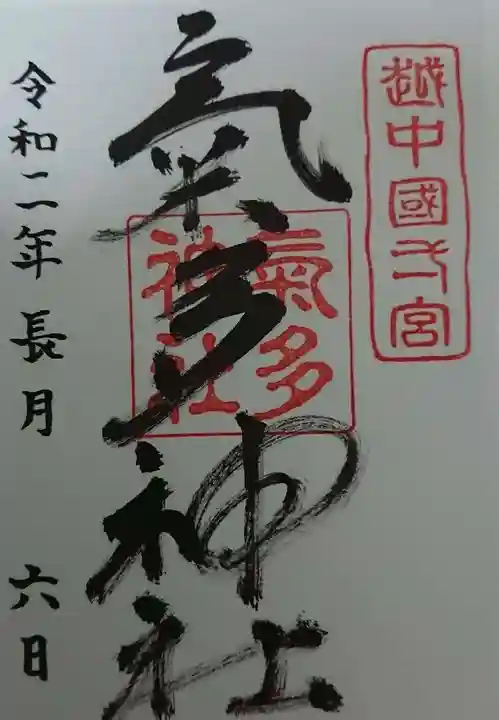 越中國一宮
氣多神社
氣多
神社
令和二年 長月 六日